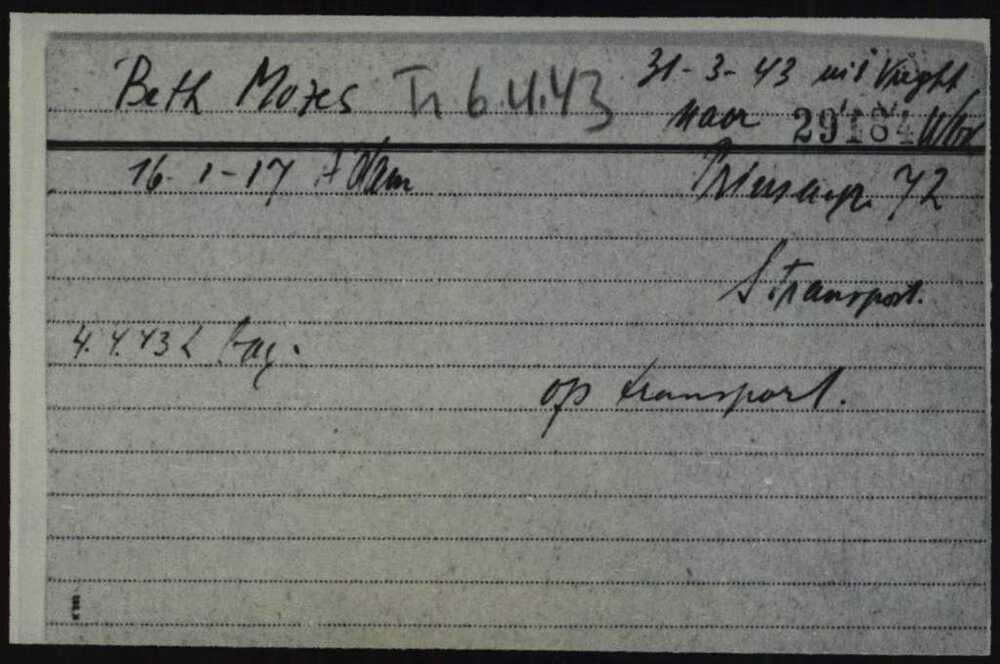 Beth Mozes Tr 6.4.43 31-3-43 uit Vught
naar 29184 Wbr
16-1-17 A'dam Prinsengr. 72
S. transport.
4.4.43 L bag.
op transport.